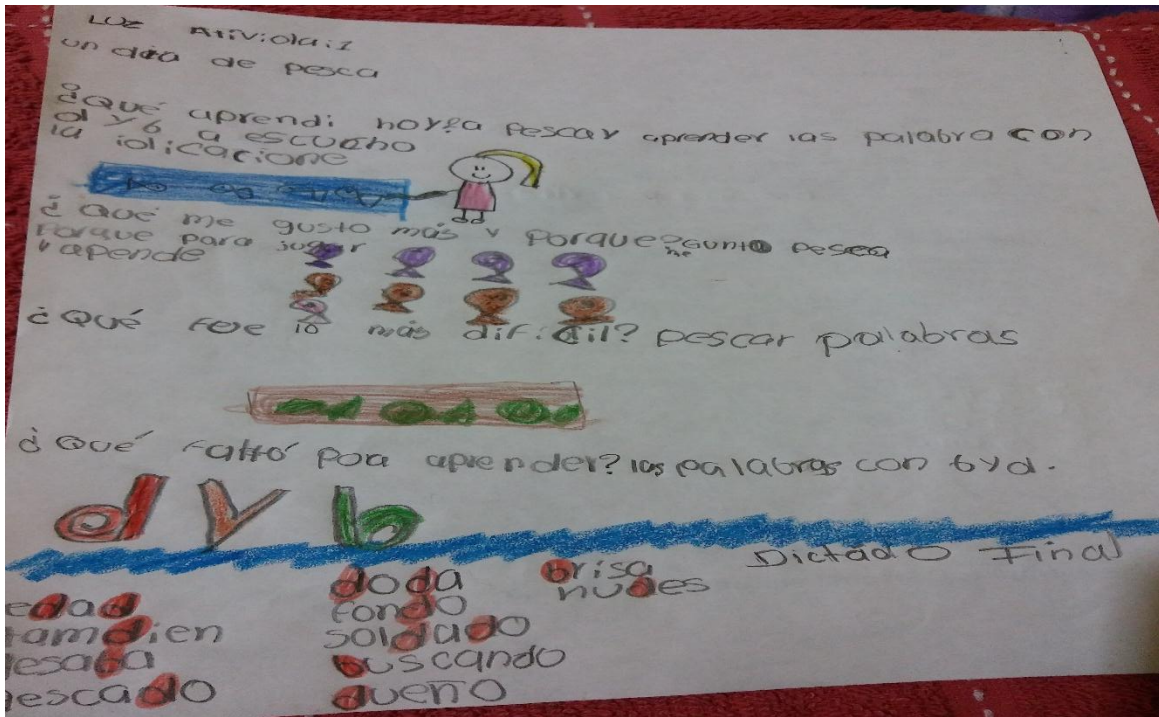 LUZ Ativida:1
un dia de pesca
¿Qué aprendi hoy?a Pescar y aprender las palabra con
d y b a escucho
la idicacione
¿Qué me gusto más y porque?me Gunto pesca
Porque para jugar
y apende
¿Qué fue lo más dificil? pescar palabras
¿Qué faltó poa aprender? las palabras con b y d.
d y b
Dictádo Final
edad
tamdien
esaba
escado
doda
fondo
soldado
buscando
dueño
brisa
nudes